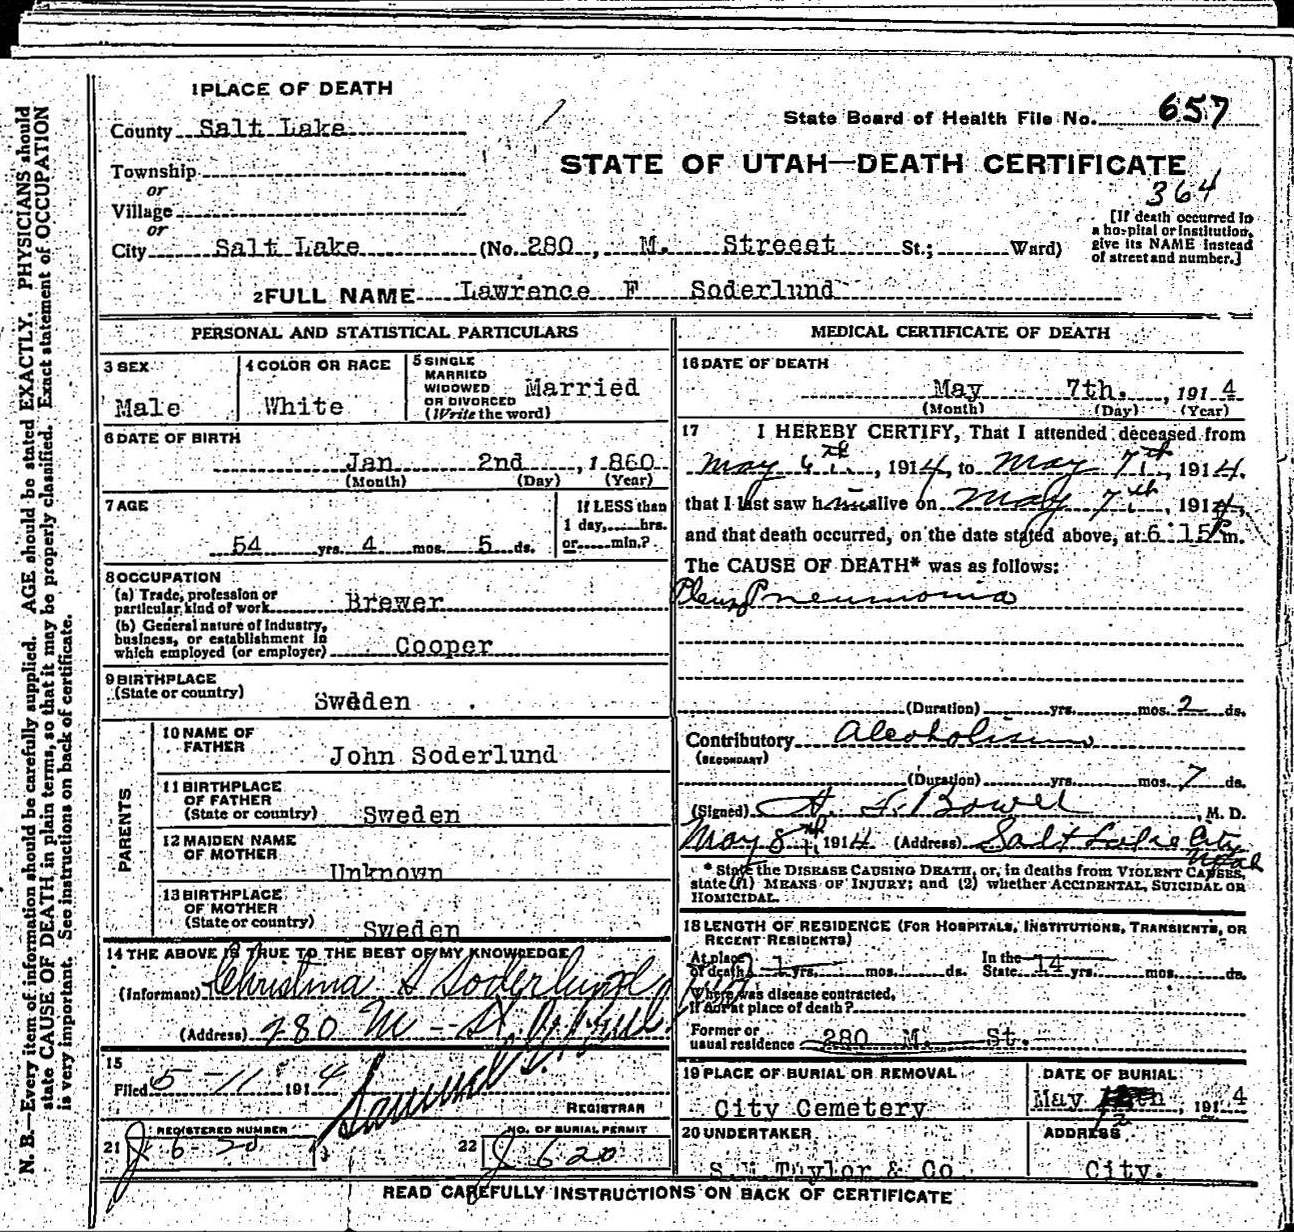 1 PLACE OF DEATH
County Salt Lake
State Board of Health File No. 657
Township
or
Village
or
STATE OF UTAH—DEATH CERTIFICATE
364
[If death occurred in a hospital or institution, give its NAME instead of street and number.]
City Salt Lake (No. 280, M. Streeet St.; Ward)
2 FULL NAME Lawrence F Soderlund
PERSONAL AND STATISTICAL PARTICULARS
3 SEX
Male
4 COLOR OR RACE
White
5 SINGLE
MARRIED
WIDOWED
OR DIVORCED
(Write the word)
Married
6 DATE OF BIRTH
Jan 2nd, 1860
(Month) (Day) (Year)
7 AGE
54 yrs. 4 mos. 5 ds.
If LESS than
1 day, hrs.
or min.?
8 OCCUPATION
(a) Trade, profession or
particular, kind of work Brewer
(b) General nature of Industry,
business, or establishment in
which employed (or employer) Cooper
9 BIRTHPLACE
(State or country)
Sweden
PARENTS
10 NAME OF
FATHER
John Soderlund
11 BIRTHPLACE
OF FATHER
(State or country) Sweden
12 MAIDEN NAME
OF MOTHER
Unknown
13 BIRTHPLACE
OF MOTHER
(State or country) Sweden
14 THE ABOVE IS TRUE TO THE BEST OF MY KNOWLEDGE
(Informant) Christina S Soderlund
(Address) 280 M - St.
15
Filed 5-11 1914
REGISTRAR
REGISTERED NUMBER
21 J 6 20
NO. OF BURIAL PERMIT
22 J 620
MEDICAL CERTIFICATE OF DEATH
16 DATE OF DEATH
May 7th., 1914
(Month) (Day) (Year)
17 I HEREBY CERTIFY, That I attended deceased from
May 6th, 1914, to May 7th, 1914.
that I last saw him alive on May 7th, 1914,
and that death occurred, on the date stated above, at 6 15 P m.
The CAUSE OF DEATH* was as follows:
Pneumonia
(Duration) yrs. mos. 2 ds.
Contributory Alcoholism
(SECONDARY)
(Duration) yrs. mos. 7 ds.
(Signed) Bower, M. D.
May 8th, 1914 (Address) Salt Lake City
Utah
* State the DISEASE CAUSING DEATH, or, in deaths from VIOLENT CAUSES,
state (1) MEANS OF INJURY; and (2) whether ACCIDENTAL, SUICIDAL OR
HOMICIDAL.
18 LENGTH OF RESIDENCE (FOR HOSPITALS, INSTITUTIONS, TRANSIENTS, OR
RECENT RESIDENTS)
At place
of death 1 yrs. mos. ds. In the
State 14 yrs. mos. ds.
Where was disease contracted,
If not at place of death?
Former or
usual residence 280 M. St.
19 PLACE OF BURIAL OR REMOVAL
City Cemetery
DATE OF BURIAL
May 12, 1914
20 UNDERTAKER
S.M. Taylor & Co
ADDRESS
City.
READ CAREFULLY INSTRUCTIONS ON BACK OF CERTIFICATE
N. B.—Every item of information should be carefully supplied. AGE should be stated EXACTLY. PHYSICIANS should
state CAUSE OF DEATH in plain terms, so that it may be properly classified. Exact statement of OCCUPATION
is very important. See instructions on back of certificate.